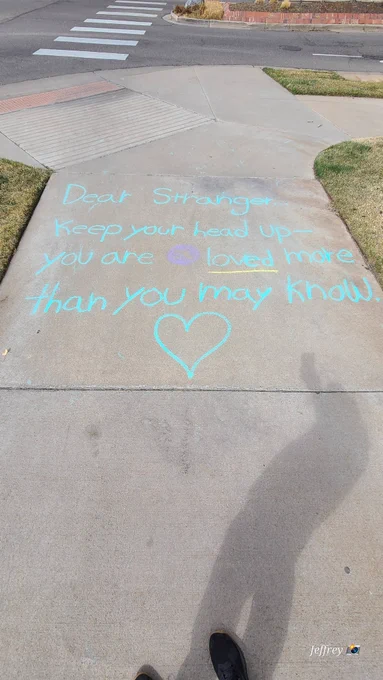 Dear Stranger
Keep your head up—
you are loved more
than you may know.
Jeffrey